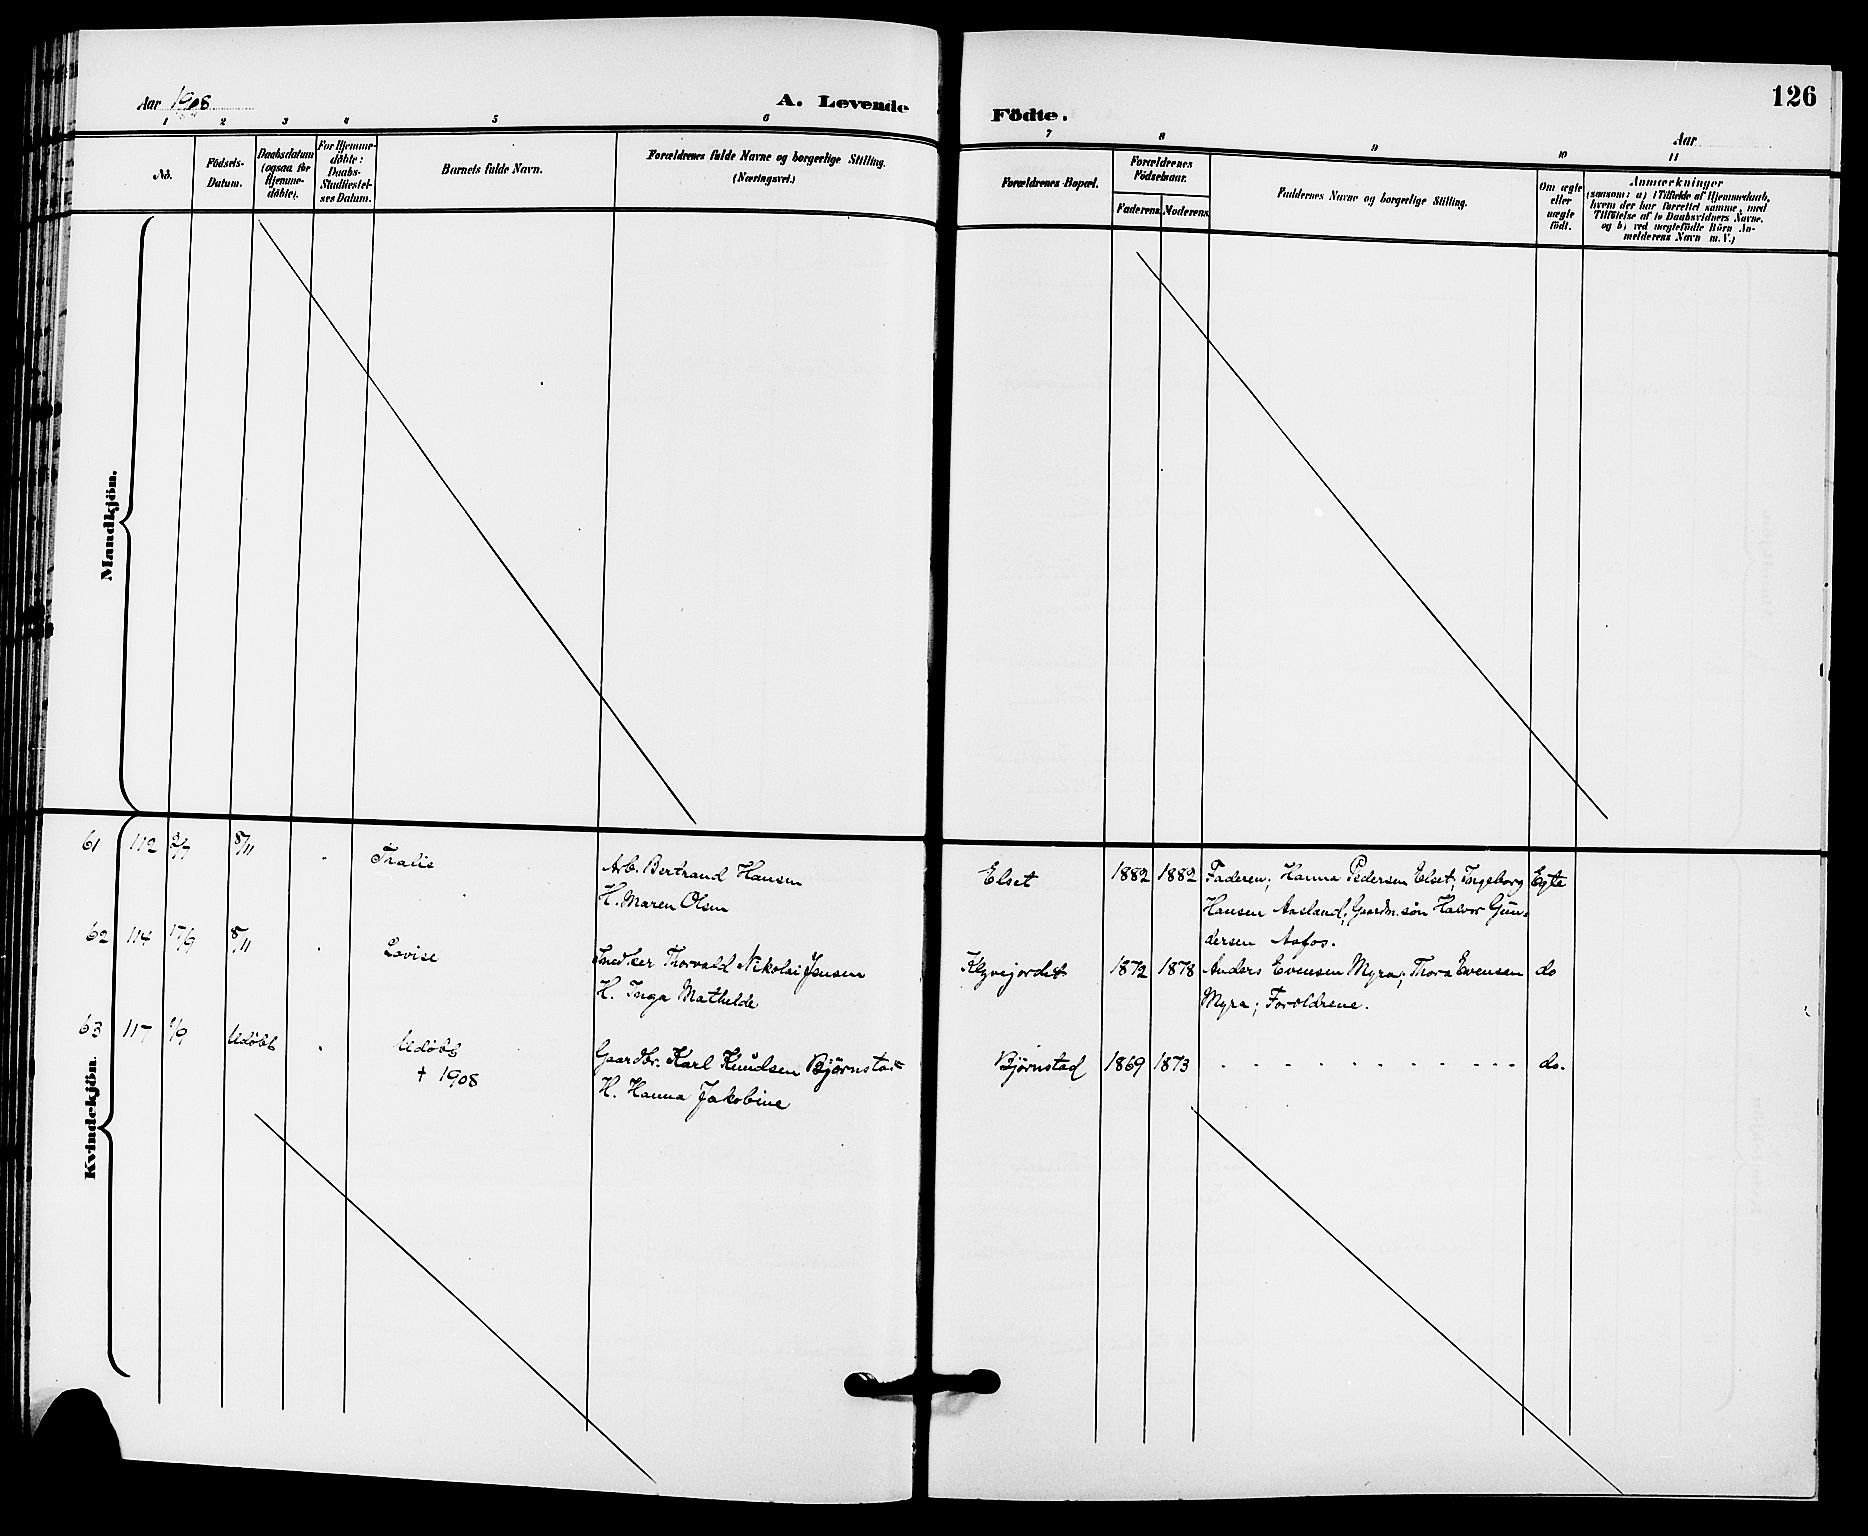 Aar 1908
A. Levende
Födte.
126
Aar
1 2 3 4 5 6
7 8 9 10 11
No.
Födsels-
Datum.
Daabsdatum
(ogsaa for
Hjemme-
döbte).
For Hjemme-
döbte:
Daabs-
Stadfæstel-
ses Datum.
Barnets fulde Navn.
Forældrenes fulde Navne og borgerlige Stilling.
(Næringsvei.)
Forældrenes Bopæl.
Forældrenes
Födselsaar.
Faderens Moderens
Faddernes Navne og borgerlige Stilling.
Om ægte
eller
uægte
födt.
Anmærkninger
(saasom: a) i Tilfælde af Hjemmedaab,
hvem der har forrettet samme, med
Tilföielse af to Daabsvidners Navne,
og b) ved uægtefödte Börn An-
melderens Navn m. V.)
Mandkjön.
Kvindekjön.
61 112 8/11 Tralie Arb. Bertrand Hansen Elset 1882 1882 Faderen; Hanna Pedersen Elset; Ingeborg Egte
H. Maren Olsen Hansen Aasland; Gaardm.søn Halvor Gun-
dersen Aafos.
62 114 17/9 8/11 Lovise Thorvald Nikolai Jensen 1872 1878 Anders Evensen Myra; Thora Evensen do
H. Inga Mathilde Myra; Foreldrene.
63 117 /9 Udøbt Udøbt Gaardbr. Karl Knudsen Bjørnstad Bjørnstad 1869 1873 . . . . . . . . . . . do.
† 1908 H. Hanna Jakobine